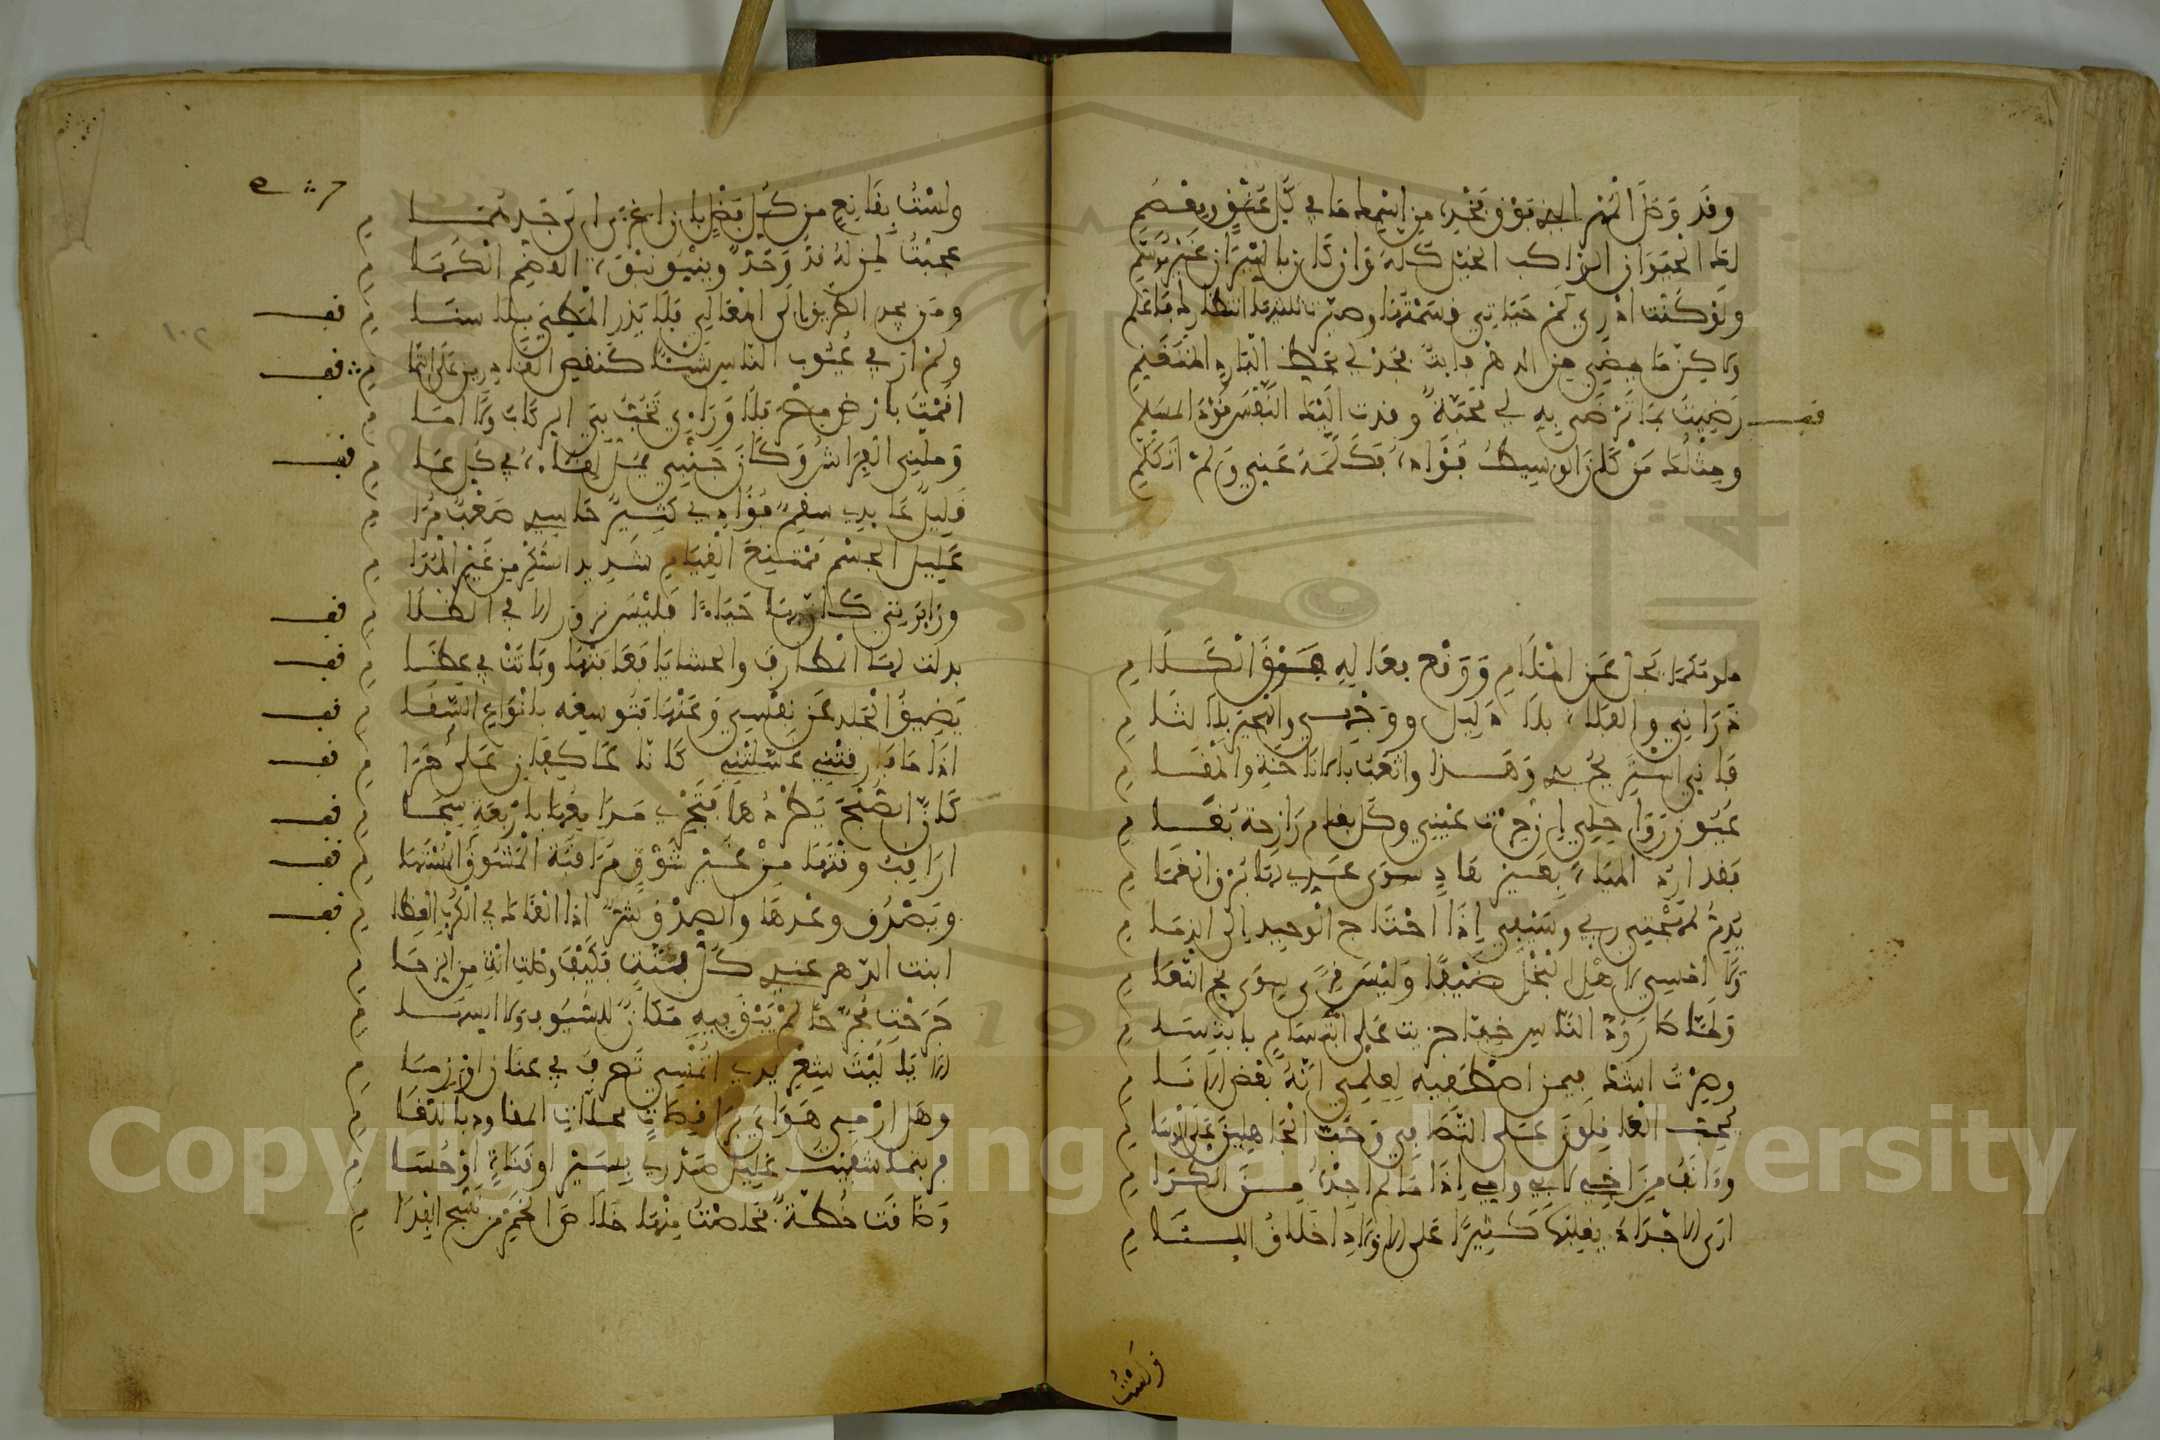 وقد وصل المهر الذي فوق فخذه من اسمك ما في كل عنق ومعصم
لك الحيوان الراكب الخيل كله وان كان بالنيران غير موسم
ولو كنت ادري كم حياتي قسمتها وصيرت ثلثيها انتظارك فاعلم
ولاكن ما يمضي من الدهر فايت فجد لي بحظ البادر المتغنم
قف رضيت بما ترضى به لي محبة وقدت اليك النفس قود المسلم
ومثلك من كان الوسيط فؤاده فكلمه عني ولم اتكلم
ملومكما يجل عن الملام ووقع فعاله فوق الكلا م
ذراني والفلاة بلا دليل ووجهي والهجير بلا لثا م
فاني استريح بذي وهذا واتعب بالاناخة والمقا م
عيون رواحلي ان حرت عيني وكل بغام رازحة بغا م
فقد ارد المياه بغير هاد سوى عدي لها برق الغما م
يذم لمهجتي ربي وسيفي اذا احتاج الوحيد الى الذما م
ولا امسي لاهل البخل ضيفا وليس قرى سوى مخ النعا م
ولما صار ود الناس خبا جزيت على ابتسام بابتسا م
وصرت اشك فيمن اصطفيه لعلمي انه بعض الانا م
يحب العاقلون على التصافي وحب الجاهلين على الوسا م
وءانف من اخي لابي وامي اذا ما لم اجده من الكرا م
ارى الاجداد يغلبها كثيرا على الاولاد اخلاق اللئا م
ولست
ولست بقانع من كل فضل بان اعزى الى جد هما م
عجبت لمن له قد وحد وينبو نبوة القضم الكها م
ومن يجد الطريق الى المعالي فلا يذر المطي بلا سنا م قف
ولم ار في عيوب الناس شيئا كنقص القادرين على التما م قف
اقمت بارض مصر فلا وراءي تخب بي الركاب ولا اما م
وملني الفراش وكان جنبي يمل لقاءه في كل عا م قف
قليل عايدي سقم فؤادي كثير حاسدي صعب مرا م
عليل الجسم ممتنع القيام شديد السكر من غير المدا م
وزايرتي كان بها حياء فليس تزور الا في الظلا م قف
بذلت لها المطارف والحشايا فعافتها وباتت في عظا م قف
يضيق الجلد عن نفسي وعنها فتوسعه بانواع السقا م قف
اذا ما فارقتني غسلتني كانا عاكفان على حرا م قف
كان الصبح يطردها فتجري مدامعها باربعة سجا م قف
اراقب وقتها من غير شوق مراقبة المشوق المستها م قف
ويصدق وعدها والصدق شر اذا القاك في الكرب العظا م قف
ابنت الدهر عندي كل بنت فكيف وصلت انت من الزحا م
جرحت مجرحا لم يبق فيه مكان للسيوف ولا السها م
الا يا ليت شعر يدي اتمسي تصرف في عنان او زما م
وهل ارمي هواي براقصات محلات المقاود باللغا م
فربتما شفيت غليل صدري بسير او قناة او حسا م
وضاقت خطة فخلصت منها خلاص الخمر من نسج الفدا م
Copyright © King Saud University